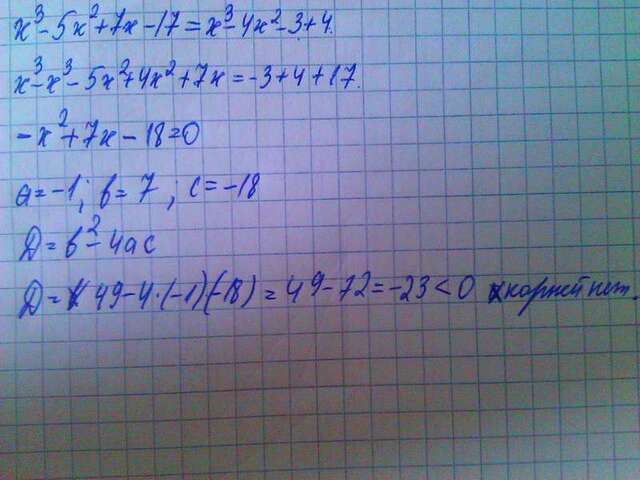 x³ - 5x² + 7x - 17 = x³ - 4x² - 3 + 4.
x³ - x³ - 5x² + 4x² + 7x = -3 + 4 + 17.
-x² + 7x - 18 = 0
a = -1; b = 7; c = -18
D = b² - 4ac
D = 49 - 4·(-1)(-18) = 49 - 72 = -23 < 0 корней нет.